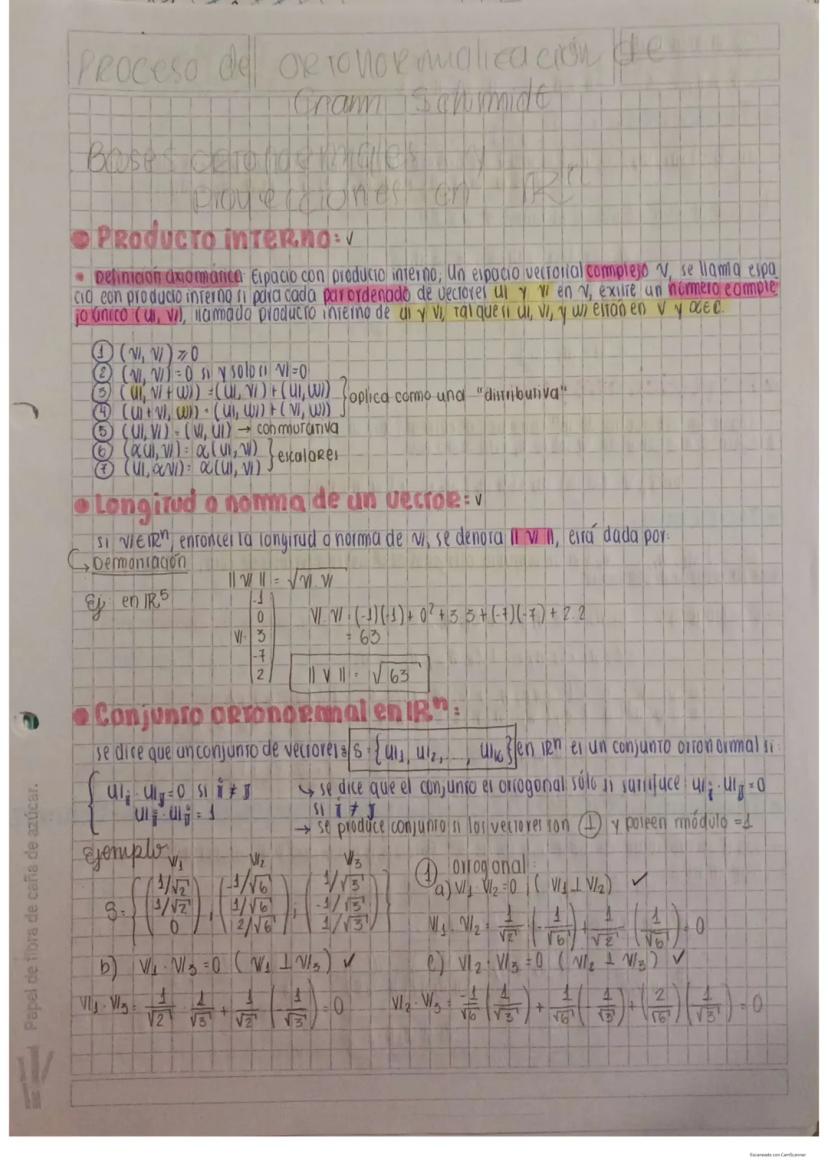 Proceso del ortonormalización de
Gram Schmidt
Bases ortonormales y
proyecciones en ℝⁿ
• Producto interno: ✓
• Definición axiomática: Espacio con producto interno; Un espacio vectorial complejo V, se llama espa
cio con producto interno si para cada par ordenado de vectores u y v en V, existe un número comple
jo único (u, v), llamado producto interno de u y v, tal que si u, v, y w están en V y α∈C.
① (v, v) ≥ 0
② (v, v) = 0 si y solo si v=0
③ (u, v+w) = (u, v) + (u, w)
④ (u+v, w) = (u, w) + (v, w) } aplica como una "distributiva"
⑤ (u, v) = (v, u) → conmutativa
⑥ (αu, v) = α(u, v)
⑦ (u, αv) = α(u, v) } escalares
• Longitud o norma de un vector: ✓
si v∈ℝⁿ, entonces la longitud o norma de v, se denota ‖v‖, está dada por:
Demostración
‖v‖ = √v.v
Ej en ℝ⁵
v: (-1 0 3 -7 2)
v.v = (-1)(-1) + 0² + 3.3 + (-7)(-7) + 2.2
= 63
‖v‖ = √63
• Conjunto ortonormal en ℝⁿ:
se dice que un conjunto de vectores S={u₁, u₂, ..., uₖ} en ℝⁿ es un conjunto ortonormal si:
uᵢ · uⱼ = 0 si i ≠ j
uᵢ · uᵢ = 1
↳ se dice que el conjunto es ortogonal sólo si satisface: uᵢ · uⱼ = 0
si i ≠ j
→ se produce conjunto si los vectores son ⊥ y poseen módulo = 1
Ejemplo
v₁ v₂ v₃
S = { (1/√2 1/√2 0), (-1/√6 1/√6 2/√6), (1/√3 -1/√3 1/√3) }
① ortogonal:
a) v₁ v₂ = 0 ; (v₁ ⊥ v₂) ✓
v₁ . v₂ = 1/√2 (-1/√6) + 1/√2 (1/√6) = 0
b) v₁ · v₃ = 0 (v₁ ⊥ v₃) ✓
c) v₂ · v₃ = 0 (v₂ ⊥ v₃) ✓
v₁ · v₃ = 1/√2 · 1/√3 + 1/√2 (-1/√3) = 0
v₂ · v₃ = -1/√6 (1/√3) + 1/√6 (-1/√3) + (2/√6)(1/√3) = 0
Papel de fibra de caña de azúcar.
Escaneado con CamScanner